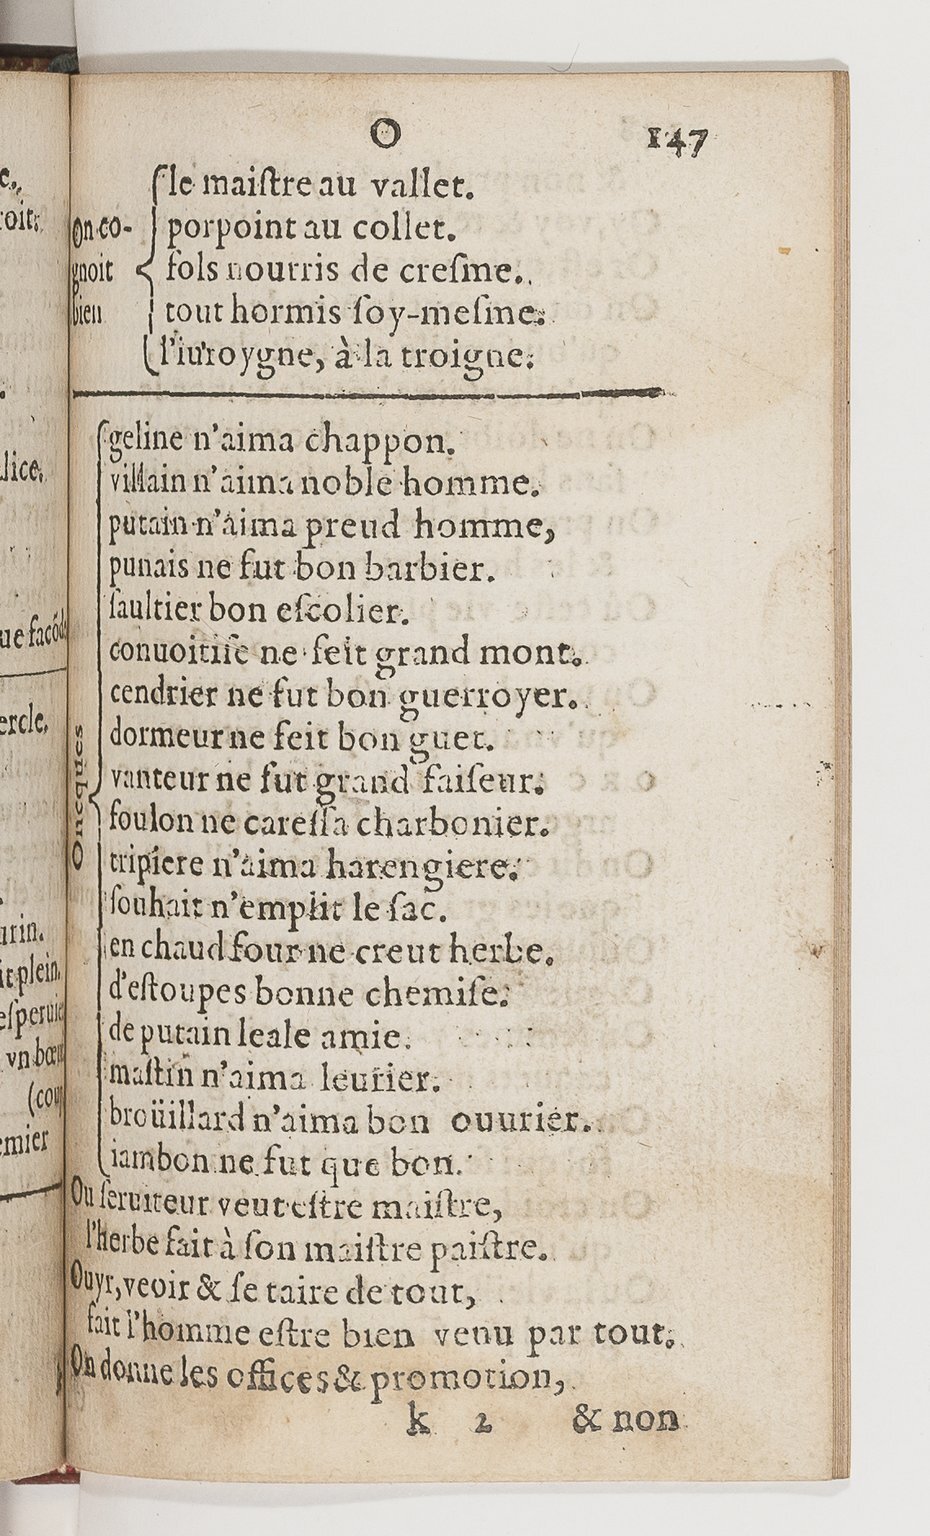 O 147
le maiſtre au vallet.
On co- porpoint au collet.
gnoit fols nourris de creſme.
bien tout hormis ſoy-meſme.
l'iuroygne, à la troigne.
geline n'aima chappon.
villain n'aima noble homme.
putain n'aima preud homme,
punais ne fut bon barbier.
ſaultier bon eſcolier.
conuoitiſe ne feit grand mont.
cendrier ne fut bon guerroyer.
dormeur ne feit bon guet.
Oncques vanteur ne fut grand faiſeur.
foulon ne careſſa charbonier.
tripiere n'aima harengiere.
ſouhait n'emplit le ſac.
en chaud four ne creut herbe.
d'eſtoupes bonne chemiſe.
de putain leale amie.
maſtin n'aima leurier.
broüillard n'aima bon ouurier.
iambon ne fut que bon.
Ou ſeruiteur veut eſtre maiſtre,
l'herbe fait à ſon maiſtre paiſtre.
Ouyr, veoir & ſe taire de tout,
fait l'homme eſtre bien venu par tout.
On donne les offices & promotion,
k 2 & non